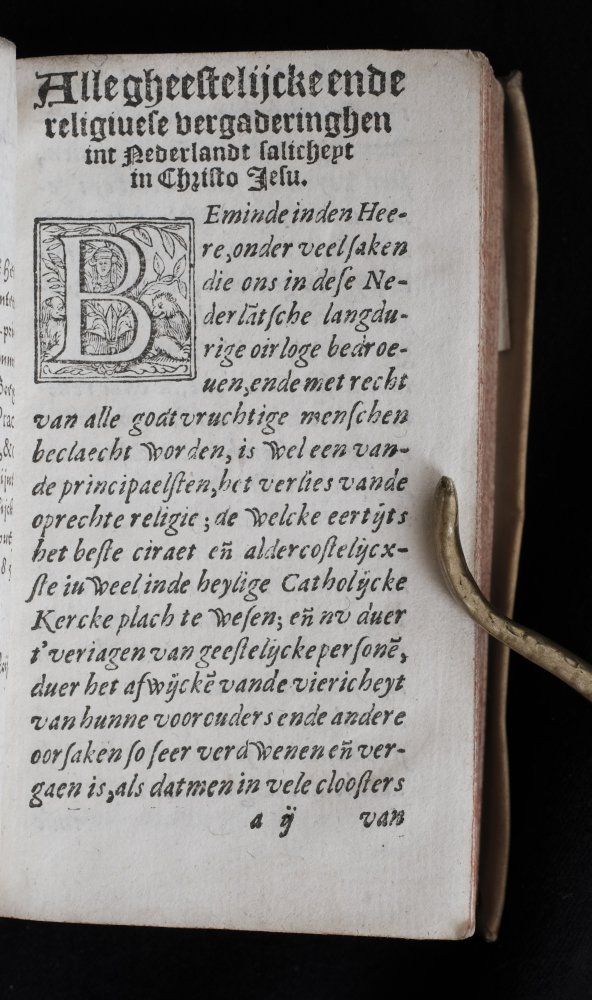 Alle gheestelijcke ende
religiuese vergaderinghen
int Nederlandt salicheyt
in Christo Jesu.
BEminde inden Hee-
re, onder veel saken
die ons in dese Ne-
derlãtsche langdu-
rige oirloge bedroe-
uen, ende met recht
van alle godtvruchtige menschen
beclaecht worden, is wel een van-
de principaelsten, het verlies vande
oprechte religie; de welcke eertijts
het beste ciraet eñ aldercostelijcx-
ste iuweel inde heylige Catholijcke
Kercke plach te wesen; eñ nv duer
t'veriagen van geestelijcke personẽ,
duer het afwijckẽ vande viericheyt
van hunne voorouders ende andere
oorsaken so seer verdwenen eñ ver-
gaen is, als datmen in vele cloosters
a ij van